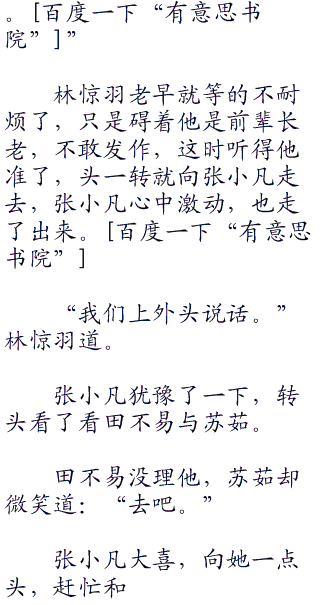 。[百度一下“有意思书
院”]”
林惊羽老早就等的不耐
烦了，只是碍着他是前辈长
老，不敢发作，这时听得他
准了，头一转就向张小凡走
去，张小凡心中激动，也走
了出来。[百度一下“有意思
书院”]
“我们上外头说话。”
林惊羽道。
张小凡犹豫了一下，转
头看了看田不易与苏茹。
田不易没理他，苏茹却
微笑道：“去吧。”
张小凡大喜，向她一点
头，赶忙和